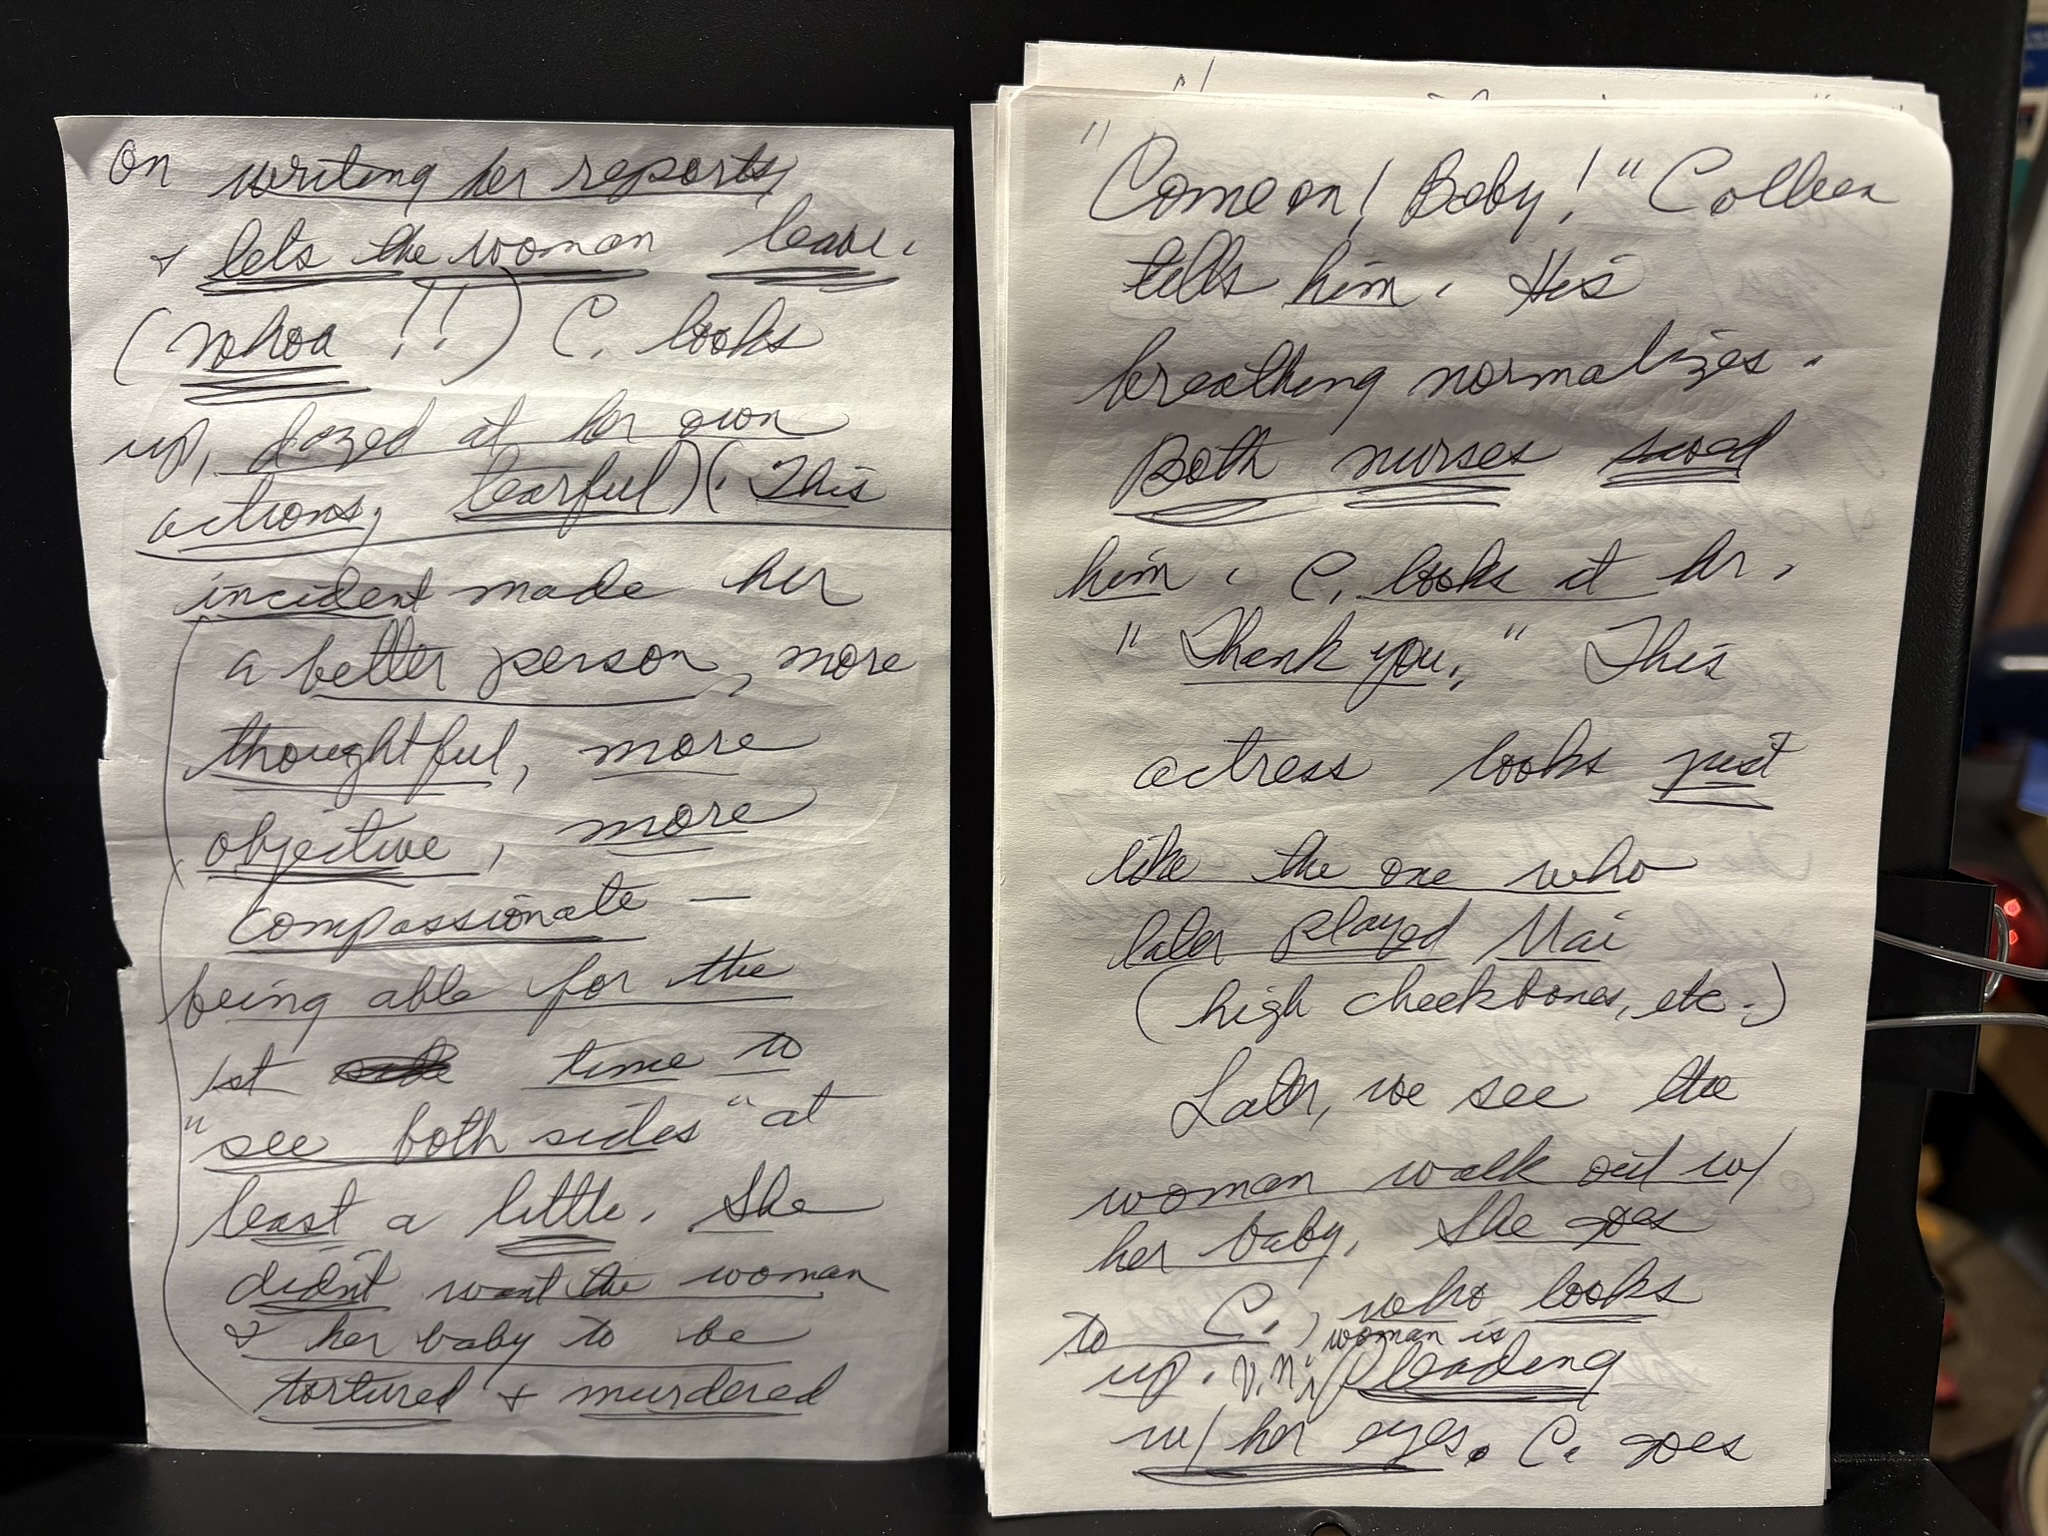 on writing her reports,
& lets the woman leave.
(whoa!!) C. looks
up, dazed at her own
actions, tearful) (. This
incident made her
a better person, more
thoughtful, more
objective, more
compassionate —
being able for the
1st time to
"see both sides" at
least a little. She
didn't want the woman
& her baby to be
tortured & murdered
"Come on! Baby!" Colleen
tells him. His
breathing normalizes.
Both nurses saved
him. C. looks at her,
"Thank you." This
actress looks just
like the one who
later played Mai
(high cheekbones, etc.)
Later, we see the
woman walk out w/
her baby. She goes
to C., who looks
woman is
up. V.N. pleading
w/ her eyes. C. goes